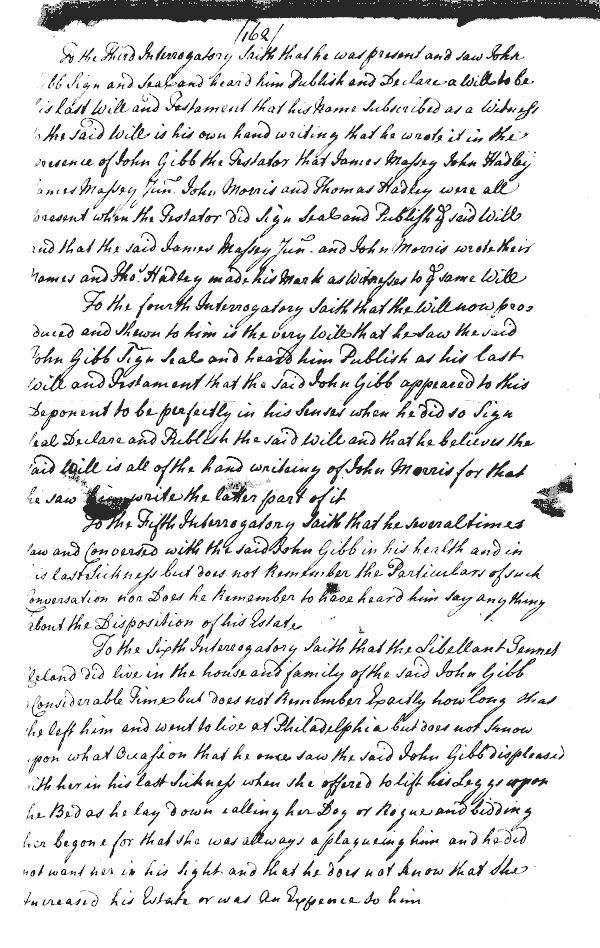 /162/
To the Third Interrogatory Saith that he was present and saw John
Gibb Sign and Seal and heard him Publish and Declare a Will to be
his last Will and Testament that his Name Subscribed as a Witness
to the said Will is his own hand writing that he wrote it in the
presence of John Gibb the Testator that James Massey John Hadley
James Massey Jun. John Morris and Thomas Hadley were all
present when the Testator did Sign Seal and Publish ye said Will
and that the said James Massey Jun. and John Morris wrote their
Names and Tho. Hadley made his Mark as Witnesses to ye same Will
To the fourth Interrogatory Saith that the Will now pro=
duced and Shewn to him is the very Will that he saw the said
John Gibb Sign Seal and heard him Publish as his last
Will and Testament that the Said John Gibb appeared to this
Deponent to be perfectly in his Senses when he did so Sign
Seal Declare and Publish the said Will and that he believes the
said Will is all of the hand writeing of John Morris for that
he saw him write the latter part of it
To the Fifth Interrogatory Saith that he several times
saw and Conversed with the said John Gibb in his health and in
his last Sickness but does not Remember the Particulars of such
Conversation nor Does he Remember to have heard him say any thing
about the Disposition of his Estate
To the Sixth Interrogatory Saith that the Libellant Jennet
Cleland did live in the house and family of the said John Gibb
Considerable Time but does not Remember Exactly how long that
he left him and went to live at Philadelphia but does not know
upon what Occasion that he once saw the said John Gibb displeased
with her in his last Sickness when she offered to lift his Leggs upon
the Bed as he lay down calling her Dog or Rogue and bidding
her begone for that she was allways a plagueing him and he did
not want her in his Sight and that he does not know that She
Increased his Estate or was An Expence to him